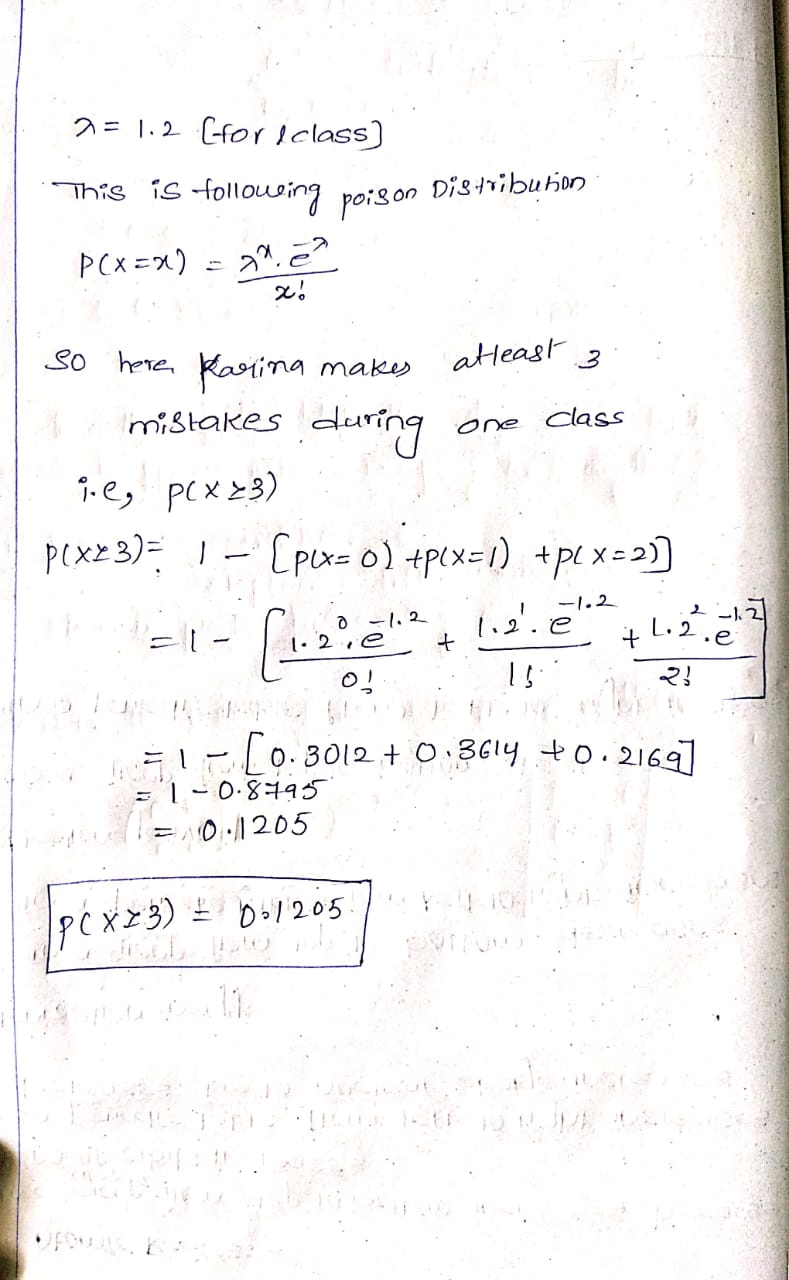 λ = 1.2 [for 1 class]
This is following poison Distribution
P(X=x) = λ^x . e^-λ / x!
So here, Karina makes atleast 3
mistakes during one class
i.e, P(X≥3)
P(X≥3) = 1 - [P(X=0) + P(X=1) + P(X=2)]
= 1 - [1.2^0 . e^-1.2 / 0! + 1.2^1 . e^-1.2 / 1! + 1.2^2 . e^-1.2 / 2!]
= 1 - [0.3012 + 0.3614 + 0.2169]
= 1 - 0.8795
= 0.1205
P(X≥3) = 0.1205